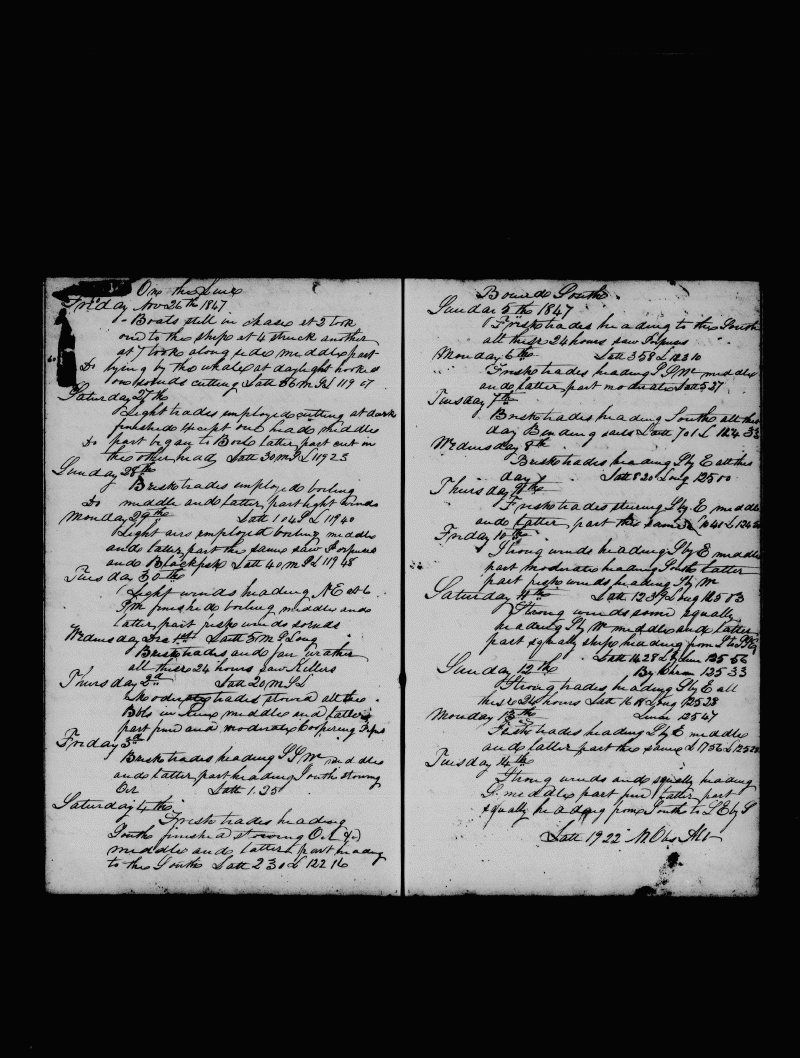 On the Line
Friday Nov 26th 1847
Boats still in chase at 2 took
one to the ship at 4 struck another
at 7 took along side middle part
Do lying by the whale at daylight hooked
on commenced cutting Latt 36 m S L 119 57
Saturday 27th
Light trades employed cutting at dark
finished except one head middle
Do part began to Boil latter part cut in
the other head Latt 30 m S L 119 23
Sunday 28th
Brisk trades employed boiling
Do middle and latter part light winds
Monday 29th Latt 1 04 S L 119 40
Light airs employed boiling middle
and latter part the same saw Porpoises
and Blackfish Latt 40 m S L 119 48
Tuesday 30th
Light winds heading N E at 6
P m finished boiling middle and
latter part fresh winds
Wednesday Dec 1st Latt 5 m S Long
Brisk trades and fair weather
all these 24 hours saw Killers
Thursday 2d Latt 20 m S L
Moderate trades stowed all the
Bbls in middle and latter
part fine and moderate Coopering Pipes
Friday 3d
Brisk trades heading S S W middle
and latter part heading South stowing
Oil Latt 1.25
Saturday 4th
Fresh trades heading
South finished stowing Oil
middle and latter part heading
to the South Latt 2 30 L 122 16
Bound South
Sunday 5th 1847
Fresh trades heading to the South
all these 24 hours saw Porpoises
Monday 6th Latt 3 58 L 123 10
Fresh trades heading S S W middle
and latter part moderate Latt 5 27
Tuesday 7th
Brisk trades heading South all this
day Bending sails Latt 7 01 L 124 33
Wednesday 8th
Brisk trades heading S by E all this
day Latt 8 20 Long 125 00
Thursday 9th
Fresh trades steering S by E middle
and latter part the same L 10 41 L 124
Friday 10th
Strong winds heading S by E middle
part moderate heading South latter
part fresh winds heading S by W
Saturday 11th Latt 12 39 Long 125 03
Strong winds some squally
heading S by W middle and latter
part squally ship heading from S to
Latt 14 28 L by Lunar 125 56
Sunday 12th By Chron 125 33
Strong trades heading S by E all
these 24 hours Latt 16 18 Long 125 28
Monday 13th Lunar 125 47
Fresh trades heading S by E middle
and latter part the same L 17 56 L 125 28
Tuesday 14th
Strong winds and squally heading
S. middle part fine latter part
squally heading from South to S E by S
Latt 19 22 N Obs Alt